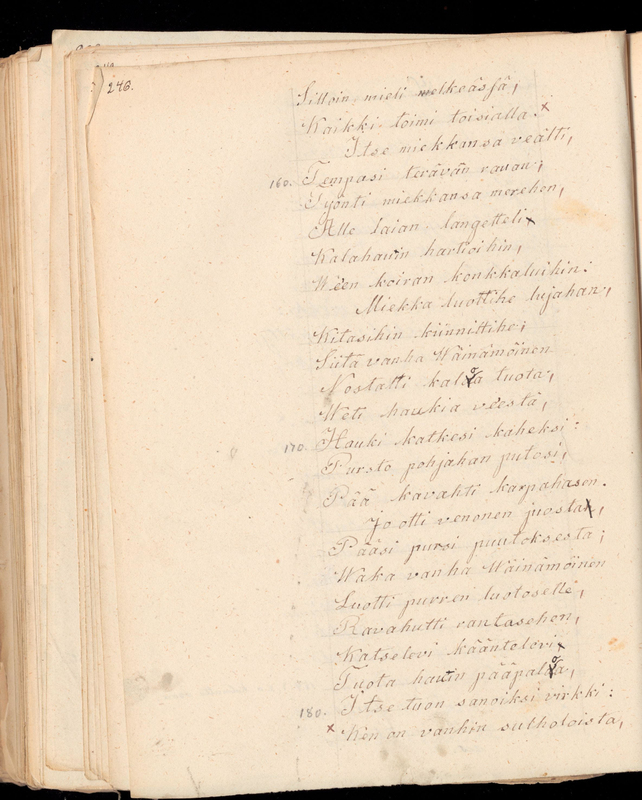 243.
Silloin mieli melkeässä,
Kaikki toimi toisialla. x
Itse miekkansa veälti,
160. Tempasi terävän rauan;
Työnti miekkansa merehen,
Alle laian langetteli
Kalahauin hartioihin,
Ween koiran konkkaluihin:
Miekka luottihe lujahan,
Kitasihin kiinnittihe;
Siitä vanha Wäinämöinen
Nostatti kaloa tuota,
Weti haukia veestä,
170. Hauki katkesi kaheksi:
Pursto pohjahan putosi,
Pää kavahti karpahasen.
Jo otti venonen juosta,
Pääsi pursi puutoksesta;
Waka vanha Wäinämöinen
Luotti purren luotoselle,
Ravahutti rantasehen,
Katselevi kääntelevi
Tuota hauin pääpaloa,
180. Itse tuon sanoiksi virkki:
x Ken on vanhin sulholoista,